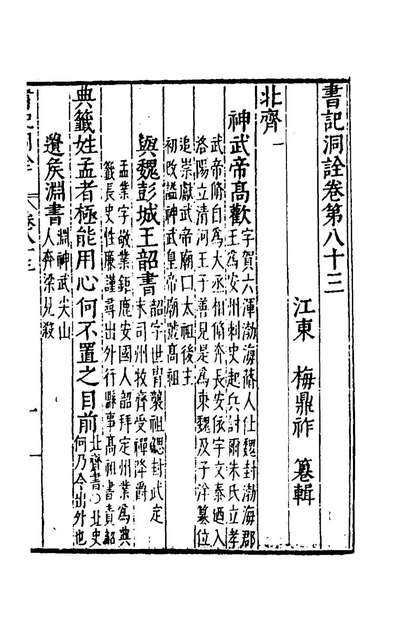 書記洞詮卷第八十三
江東 梅鼎祚 纂輯
北齊一
神武帝高歡 字賀六渾渤海蓨人仕魏封渤海郡
王為安州刺史起兵討爾朱氏立孝
武帝脩自為大丞相脩奔長安依宇文泰廼入
洛陽立清河王子善見是為東魏及子洋篡位
追崇獻武帝廟曰太祖後主
初改謚神武皇帝廟號高祖
與魏彭城王韶書 韶字世胄襲祖勰封武定
末司州牧齊受禪降爵
孟業字敬業鉅鹿安國人韶拜定州業為典
籤長史性廉謹尋出外行縣事高祖書責韶
典籤姓孟者極能用心何不置之目前 北齊書○北史
何乃令出外也
遺矦淵書 淵神武尖山
人奔梁見殺